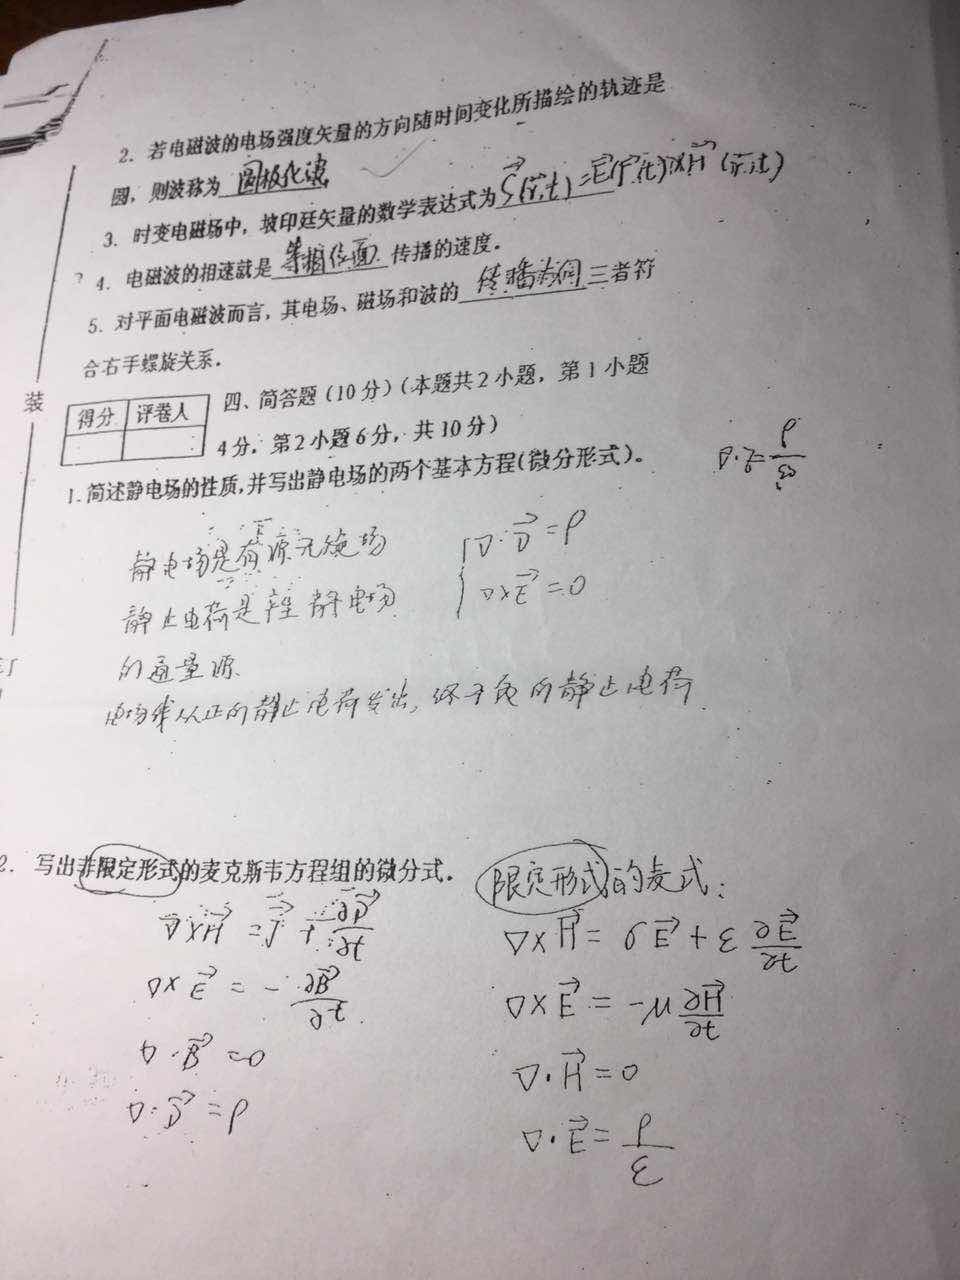 2. 若电磁波的电场强度矢量的方向随时间变化所描绘的轨迹是
圆，则波称为 圆极化波
3. 时变电磁场中，坡印廷矢量的数学表达式为 S⃗(r⃗,t) = E⃗(r⃗,t)×H⃗(r⃗,t)
? 4. 电磁波的相速就是 等相位面 传播的速度.
5. 对平面电磁波而言，其电场、磁场和波的 传播方向 三者符
合右手螺旋关系.
装
得分 评卷人
四、简答题（10分）（本题共2小题，第1小题
4分，第2小题6分，共10分）
1. 简述静电场的性质,并写出静电场的两个基本方程(微分形式)。
∇·E⃗ = ρ/ε₀
静电场是有源无旋场
∇·D⃗ = ρ
静止电荷是产生静电场
∇×E⃗ = 0
的通量源.
电场线从正的静止电荷发出, 终于负的静止电荷
2. 写出非限定形式的麦克斯韦方程组的微分式.
∇×H⃗ = J⃗ + ∂D⃗/∂t
∇×E⃗ = -∂B⃗/∂t
∇·B⃗ = 0
∇·D⃗ = ρ
限定形式的麦式:
∇×H⃗ = σE⃗ + ε ∂E⃗/∂t
∇×E⃗ = -μ ∂H⃗/∂t
∇·H⃗ = 0
∇·E⃗ = ρ/ε